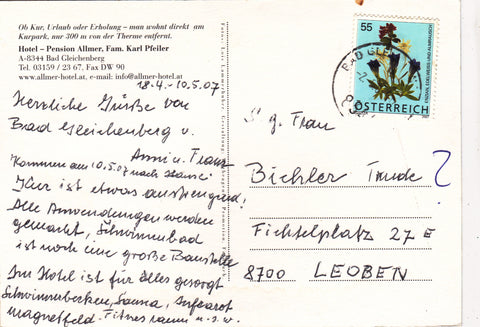 Ob Kur, Urlaub oder Erholung – man wohnt direkt am
Kurpark, nur 300 m von der Therme entfernt.
Hotel – Pension Allmer, Fam. Karl Pfeiler
A-8344 Bad Gleichenberg
Tel. 03159 / 23 67, Fax DW 90
www.allmer-hotel.at, e-mail: info@allmer-hotel.at
18.4.-10.5.07
Herzliche Grüße von
Bad Gleichenberg v.
Anni u. Franz
Kommen am 10.5.07 nach Hause!
Hier ist etwas anstrengend!
Alle Anwendungen werden
gemacht, Schwimmbad
ist noch eine große Baustelle
Im Hotel ist für alles gesorgt
Schwimmbecken, Sauna, Infrarot
Magnetfeld. Fitnessraum u.s.w.
55
ENZIAN, EDELWEISS UND ALMRAUSCH
ÖSTERREICH
BAD GLEI
S. g. Frau
Bichler Trude
?
Fichtelplatz 27 E
8700 LEOBEN